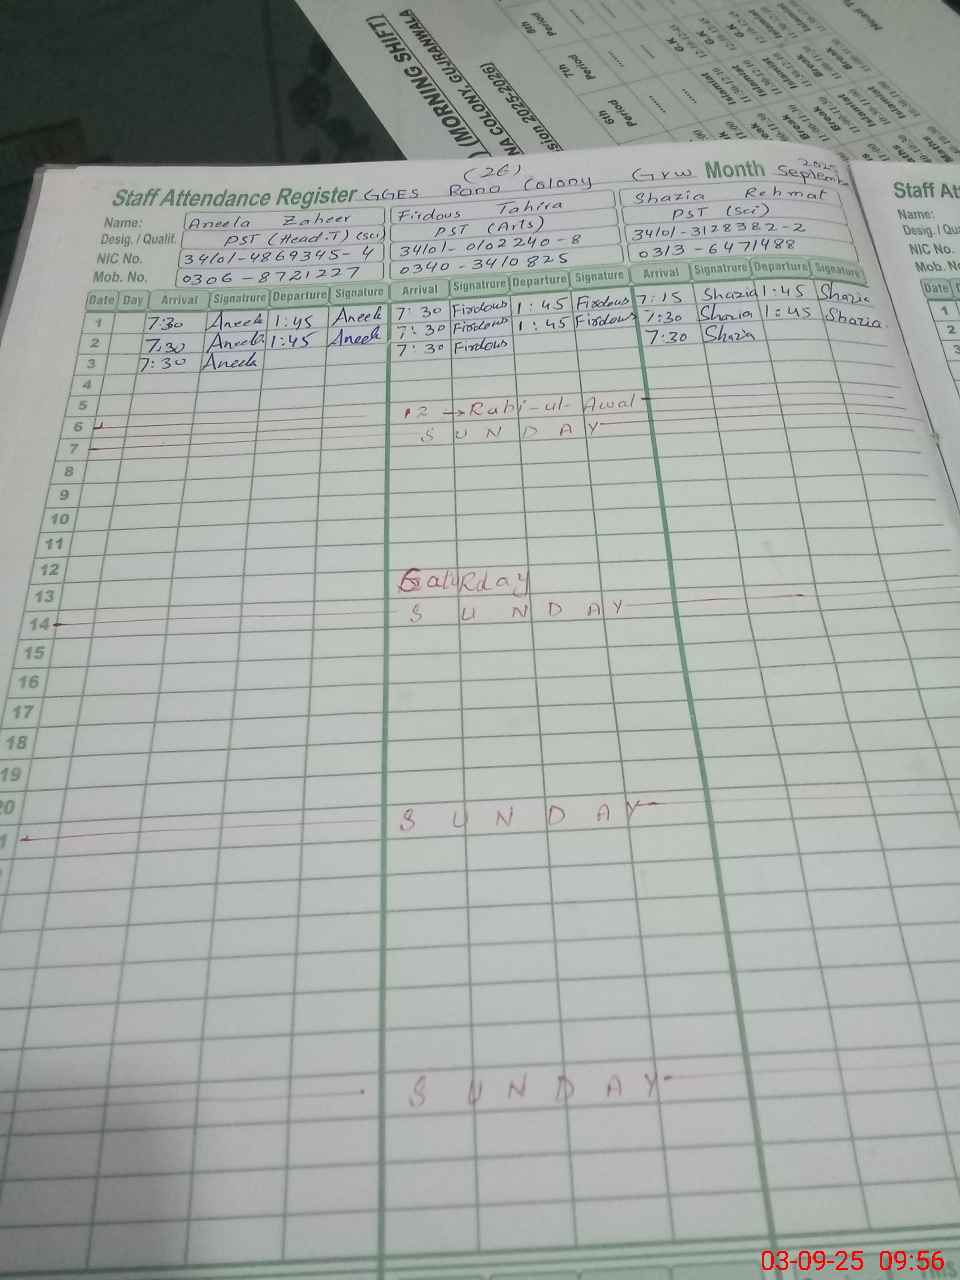 (MORNING SHIFT)
NA COLONY, GUJRANWALA
sion 2025-2026)
6th
Period
7th
Period
8th
Period
(26)
Staff Attendance Register GGES Rana Colony Grw Month September 2025
Name: Aneela Zaheer Firdous Tahira Shazia Rehmat
Desig. / Qualif. PST (Head.T) (Sci) PST (Arts) PST (Sci)
NIC No. 34101-4869345-4 34101-0102240-8 34101-3128382-2
Mob. No. 0306-8721227 0340-3410825 0313-6471488
Date Day Arrival Signatrure Departure Signature Arrival Signatrure Departure Signature Arrival Signatrure Departure Signature
1 7:30 Aneela 1:45 Aneela 7:30 Firdous 1:45 Firdous 7:15 Shazia 1:45 Shazia
2 7:30 Aneela 1:45 Aneela 7:30 Firdous 1:45 Firdous 7:30 Shazia 1:45 Shazia
3 7:30 Aneela 7:30 Firdous 7:30 Shazia
4
5
6 12 → Rabi-ul-Awal
7 SUNDAY
8
9
10
11
12
13 Saturday
14 SUNDAY
15
16
17
18
19
20
SUNDAY
SUNDAY
Staff At
Name:
Desig. / Qu
NIC No.
Mob. N
Date
1
2
3
03-09-25 09:56